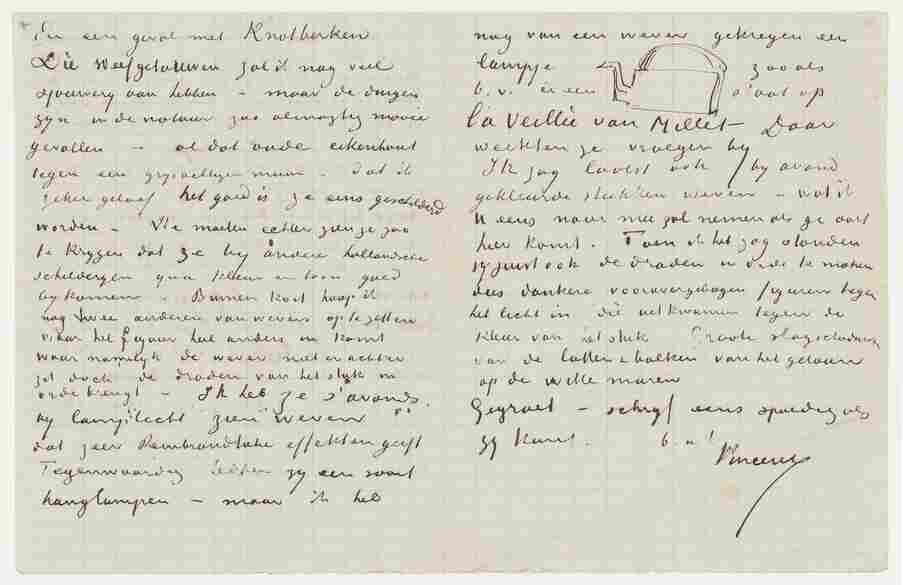 en een geval met Knotberken
Die weefgetouwen zal ik nog veel
spouwerij aan hebben – maar de dingen
zyn in de natuur zoo almagtig mooie
gevallen – al dat oude eikenhout
tegen een grysachtigen muur – dat ik
zeker geloof het goed is ze eens geschilderd
worden – We moeten echter zien ze zoo
te krygen dat ze by andere hollandsche
schilderyen qua kleur en toon goed
bykomen – Binnen kort hoop ik
nog twee anderen van wevers op te zetten
waar het figuur heel anders in komt
waar namelyk de wever niet er achter
zit doch de draden van het stuk in
orde brengt – Ik heb ze s'avonds
by lamplicht zien weven
dat zeer Rembrandtieke effekten geeft
Tegenwoordig hebben zy een soort
hanglampen – maar ik heb
nog van een wever gekregen een
lampje zooals
b.v. er een s'aat op
la Veillée van Millet – Daar
werkten ze vroeger by
Ik zag laatst ook by avond
gekleurde stukken weven – wat ik
U eens naar mee zal nemen als ge ooit
hier komt. Toen ik het zag stonden
zy juist ook de draden in orde te maken
dus donkere voorovergebogen figuren tegen
het licht in die uitkwamen tegen de
kleur van het stuk Groote slagschaduwen
van de latten & balken van het getouw
op de witte muren
Gegroet – schryf eens spoedig als
gy kunt. b. a. t
Vincent